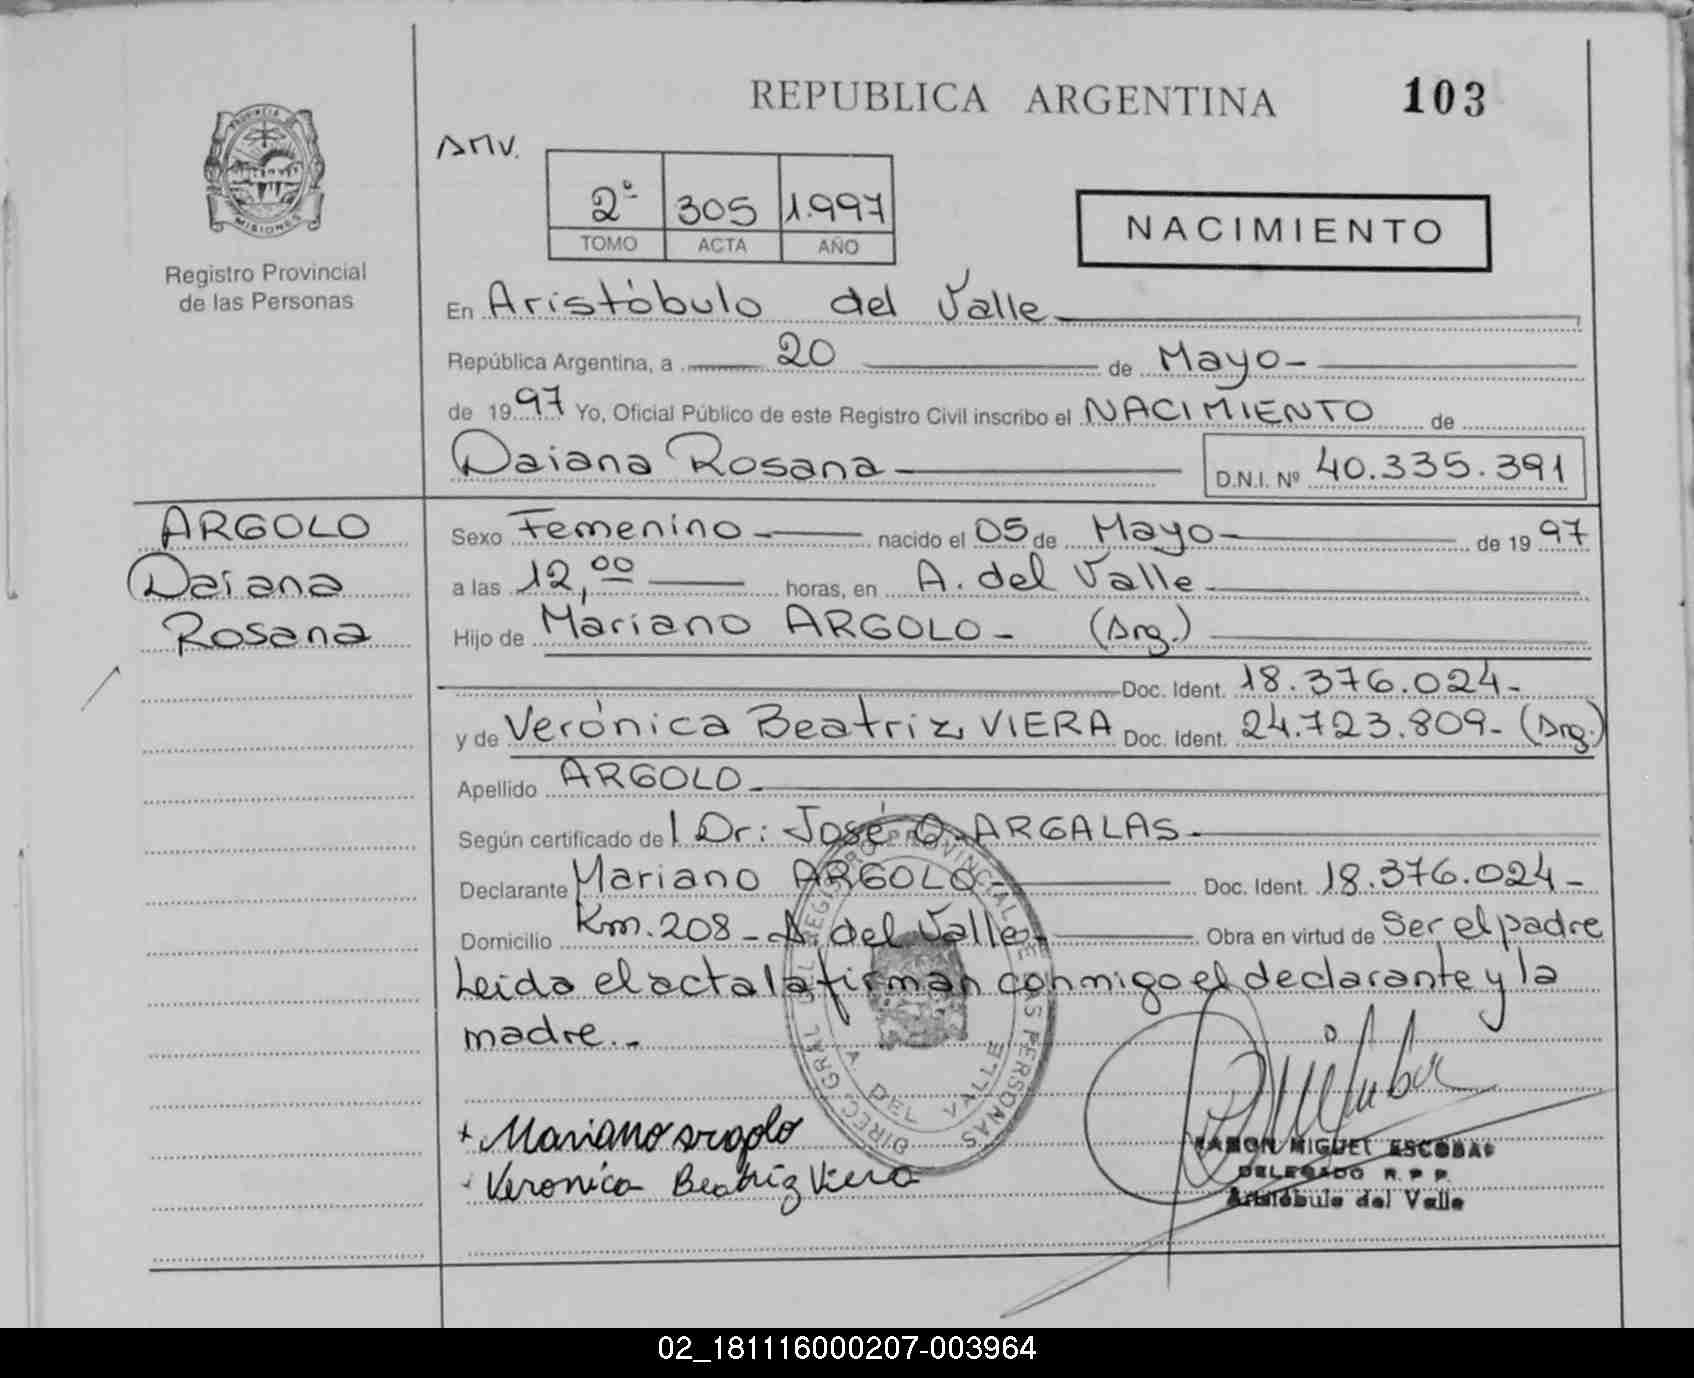 REPUBLICA ARGENTINA 103
PROVINCIA DE
MISIONES
Registro Provincial
de las Personas
AMV.
2º 305 1.997
TOMO ACTA AÑO
NACIMIENTO
En Aristóbulo del Valle
República Argentina, a 20 de Mayo-
de 1997 Yo, Oficial Público de este Registro Civil inscribo el NACIMIENTO de
Daiana Rosana D.N.I. Nº 40.335.391
ARGOLO
Daiana
Rosana
Sexo Femenino nacido el 05 de Mayo- de 1997
a las 12,00 horas, en A. del Valle
Hijo de Mariano ARGOLO- (Arg.)
Doc. Ident. 18.376.024-
y de Verónica Beatriz VIERA Doc. Ident. 24.723.809- (Arg.)
Apellido ARGOLO
Según certificado de l Dr: José O. ARGALAS-
Declarante Mariano ARGOLO- Doc. Ident. 18.376.024-
Domicilio Km.208- A. del Valle- Obra en virtud de Ser el padre
Leida el acta la firman conmigo el declarante y la
madre.-
DIREC. GRAL. DEL REGISTRO PROVINCIAL DE LAS PERSONAS
A. DEL VALLE
+ Mariano argolo
Veronica Beatriz Viera
RAMON MIGUEL ESCOBAR
DELEGADO R. P. P.
Aristóbulo del Valle
02_181116000207-003964